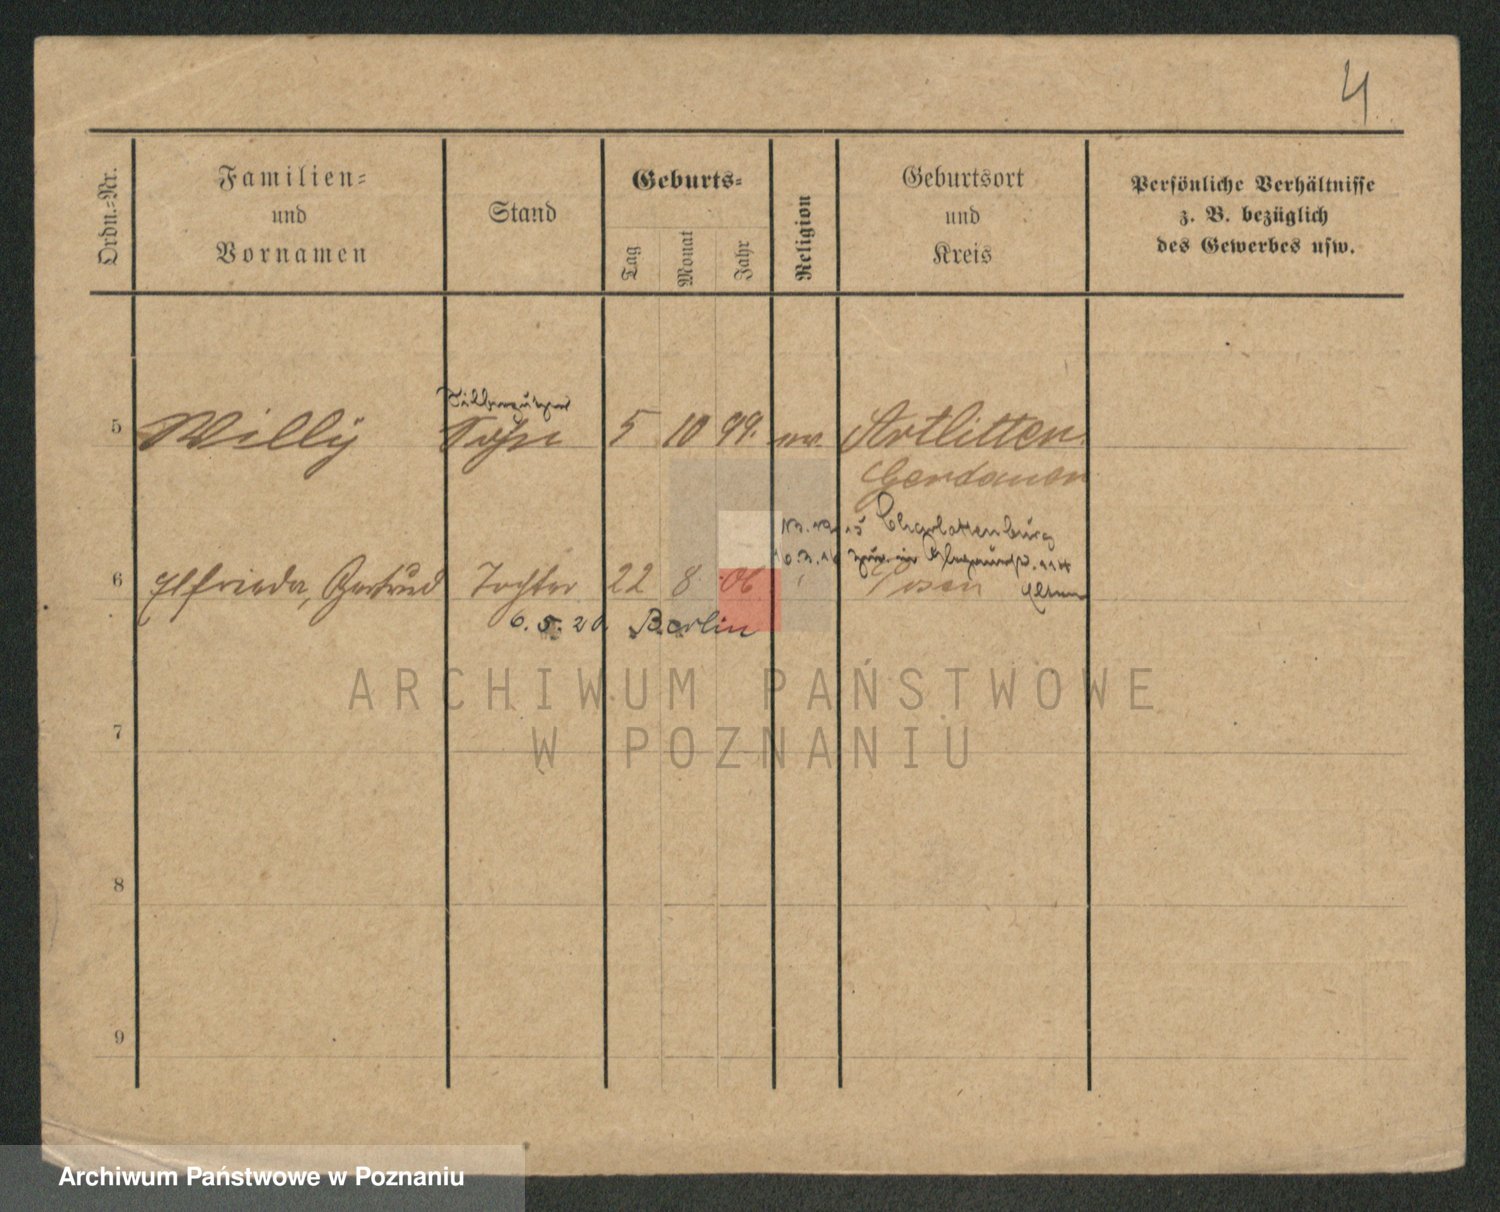 4
Ordn.-Nr.
Familien-
und
Vornamen
Stand
Geburts-
Tag
Monat
Jahr
Religion
Geburtsort
und
Kreis
Persönliche Verhältnisse
z. B. bezüglich
des Gewerbes usw.
5 Willy Sohn 5 10 99. ev. Artlitten
Gerdauen
Charlottenburg
6 Elfrieda, Gertrud Tochter 22 8 06 Posen Eltern
6. 5. 20 Berlin
ARCHIWUM PAŃSTWOWE
W POZNANIU
7
8
9
Archiwum Państwowe w Poznaniu